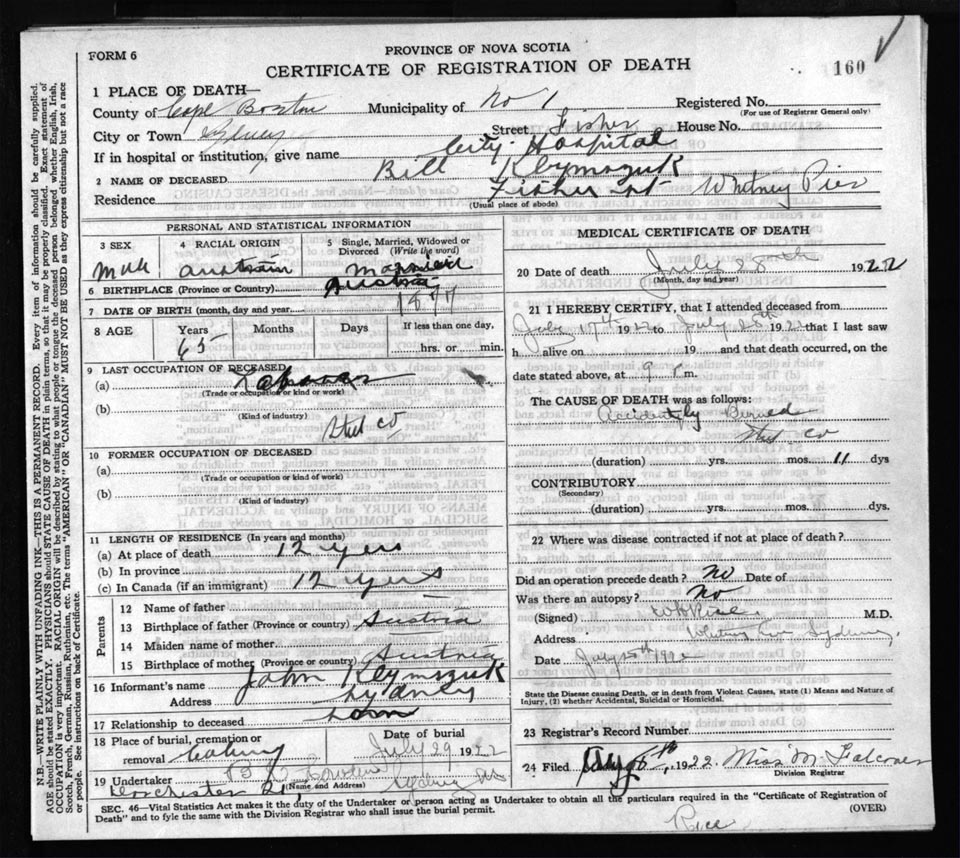 PROVINCE OF NOVA SCOTIA
FORM 6
CERTIFICATE OF REGISTRATION OF DEATH
160
1 PLACE OF DEATH—
County of Cape Breton Municipality of No 1 Registered No.
(For use of Registrar General only)
City or Town Sydney Street Fisher House No.
If in hospital or institution, give name City Hospital
2 NAME OF DECEASED Bill Klymszuk
Residence Fisher St Whitney Pier
(Usual place of abode)
PERSONAL AND STATISTICAL INFORMATION
3 SEX 4 RACIAL ORIGIN 5 Single, Married, Widowed or Divorced (Write the word)
Male Austrain Married
6 BIRTHPLACE (Province or Country) Austria
7 DATE OF BIRTH (month, day and year) 1877
8 AGE Years Months Days If less than one day,
65 hrs. or min.
9 LAST OCCUPATION OF DECEASED
(a) Laborer
(Trade or occupation or kind or work)
(b) Steel Co
(Kind of industry)
10 FORMER OCCUPATION OF DECEASED
(a)
(Trade or occupation or kind of work)
(b)
(Kind of industry)
11 LENGTH OF RESIDENCE (In years and months)
(a) At place of death 12 yers
(b) In province
(c) In Canada (if an immigrant) 12 yers
Parents
12 Name of father
13 Birthplace of father (Province or country) Austria
14 Maiden name of mother
15 Birthplace of mother (Province or country) Austria
16 Informant's name John Klymszuk
Address Sydney
17 Relationship to deceased
18 Place of burial, cremation or removal Date of burial
July 29 1922
19 Undertaker
(Name and Address)
Dorchester St Sydney NS
MEDICAL CERTIFICATE OF DEATH
20 Date of death July 28th 1922
(Month, day and year)
21 I HEREBY CERTIFY, that I attended deceased from
July 17th 1922 to July 28th 1922 that I last saw
h alive on 19 and that death occurred, on the
date stated above, at 9 m.
The CAUSE OF DEATH was as follows:
Accidently Burned
Steel Co
(duration) yrs. mos. 11 dys
CONTRIBUTORY
(Secondary)
(duration) yrs. mos. dys.
22 Where was disease contracted if not at place of death?
Did an operation precede death? No Date of
Was there an autopsy? No
(Signed) Rice M.D.
Address Whitney Pier Sydney
Date July 1922
State the Disease causing Death, or in death from Violent Causes, state (1) Means and Nature of
Injury, (2) whether Accidental, Suicidal or Homicidal.
23 Registrar's Record Number
24 Filed Aug 6th, 1922. Miss M Falconer
Division Registrar
SEC. 46—Vital Statistics Act makes it the duty of the Undertaker or person acting as Undertaker to obtain all the particulars required in the "Certificate of Registration of
Death" and to fyle the same with the Division Registrar who shall issue the burial permit. (OVER)
Rice
N.B.—WRITE PLAINLY WITH UNFADING INK—THIS IS A PERMANENT RECORD. Every item of information should be carefully supplied.
AGE should be stated EXACTLY. PHYSICIANS should STATE CAUSE OF DEATH in plain terms, so that it may be properly classified. Exact statement of
OCCUPATION is very important. RACIAL ORIGIN will be described by stating to what people or tongue the deceased person belonged, whether English, Irish,
Scotch, French, German, Russian, Ruthenian, etc. The terms "AMERICAN" OR "CANADIAN" MUST NOT BE USED as they express citizenship but not a race
or people. See instructions on back of Certificate.